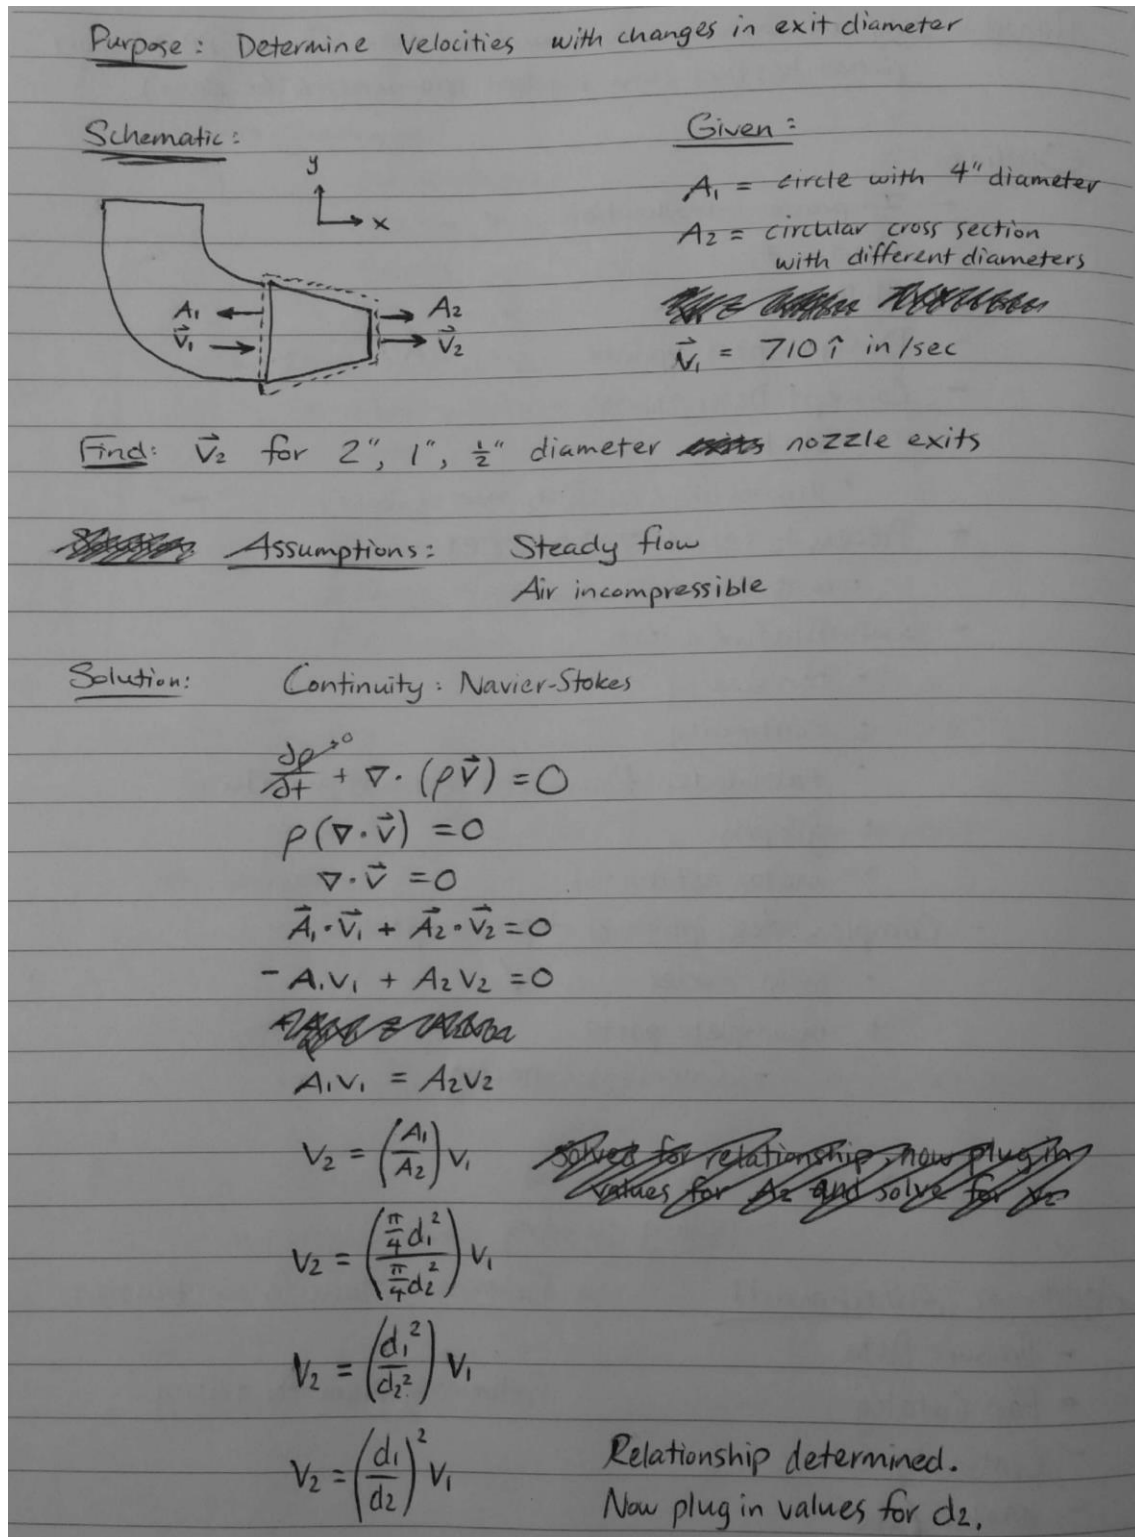 Purpose: Determine Velocities with changes in exit diameter
Schematic:
Given:
y
x
A₁ = circle with 4" diameter
A₂ = circular cross section
with different diameters
A₁
A₂
V⃗₁
V⃗₂
V⃗₁ = 710 î in/sec
Find: V⃗₂ for 2", 1", ½" diameter exits nozzle exits
Solution Assumptions: Steady flow
Air incompressible
Solution: Continuity: Navier-Stokes
∂ρ/∂t →0 + ∇·(ρV⃗) = 0
ρ(∇·V⃗) = 0
∇·V⃗ = 0
A⃗₁·V⃗₁ + A⃗₂·V⃗₂ = 0
-A₁V₁ + A₂V₂ = 0
A₁V₁ = A₂V₂
V₂ = (A₁/A₂) V₁
solved for relationship, now plug in
values for A₂ and solve for V₂
V₂ = (π/4 d₁² / π/4 d₂²) V₁
V₂ = (d₁²/d₂²) V₁
V₂ = (d₁/d₂)² V₁
Relationship determined.
Now plug in values for d₂.